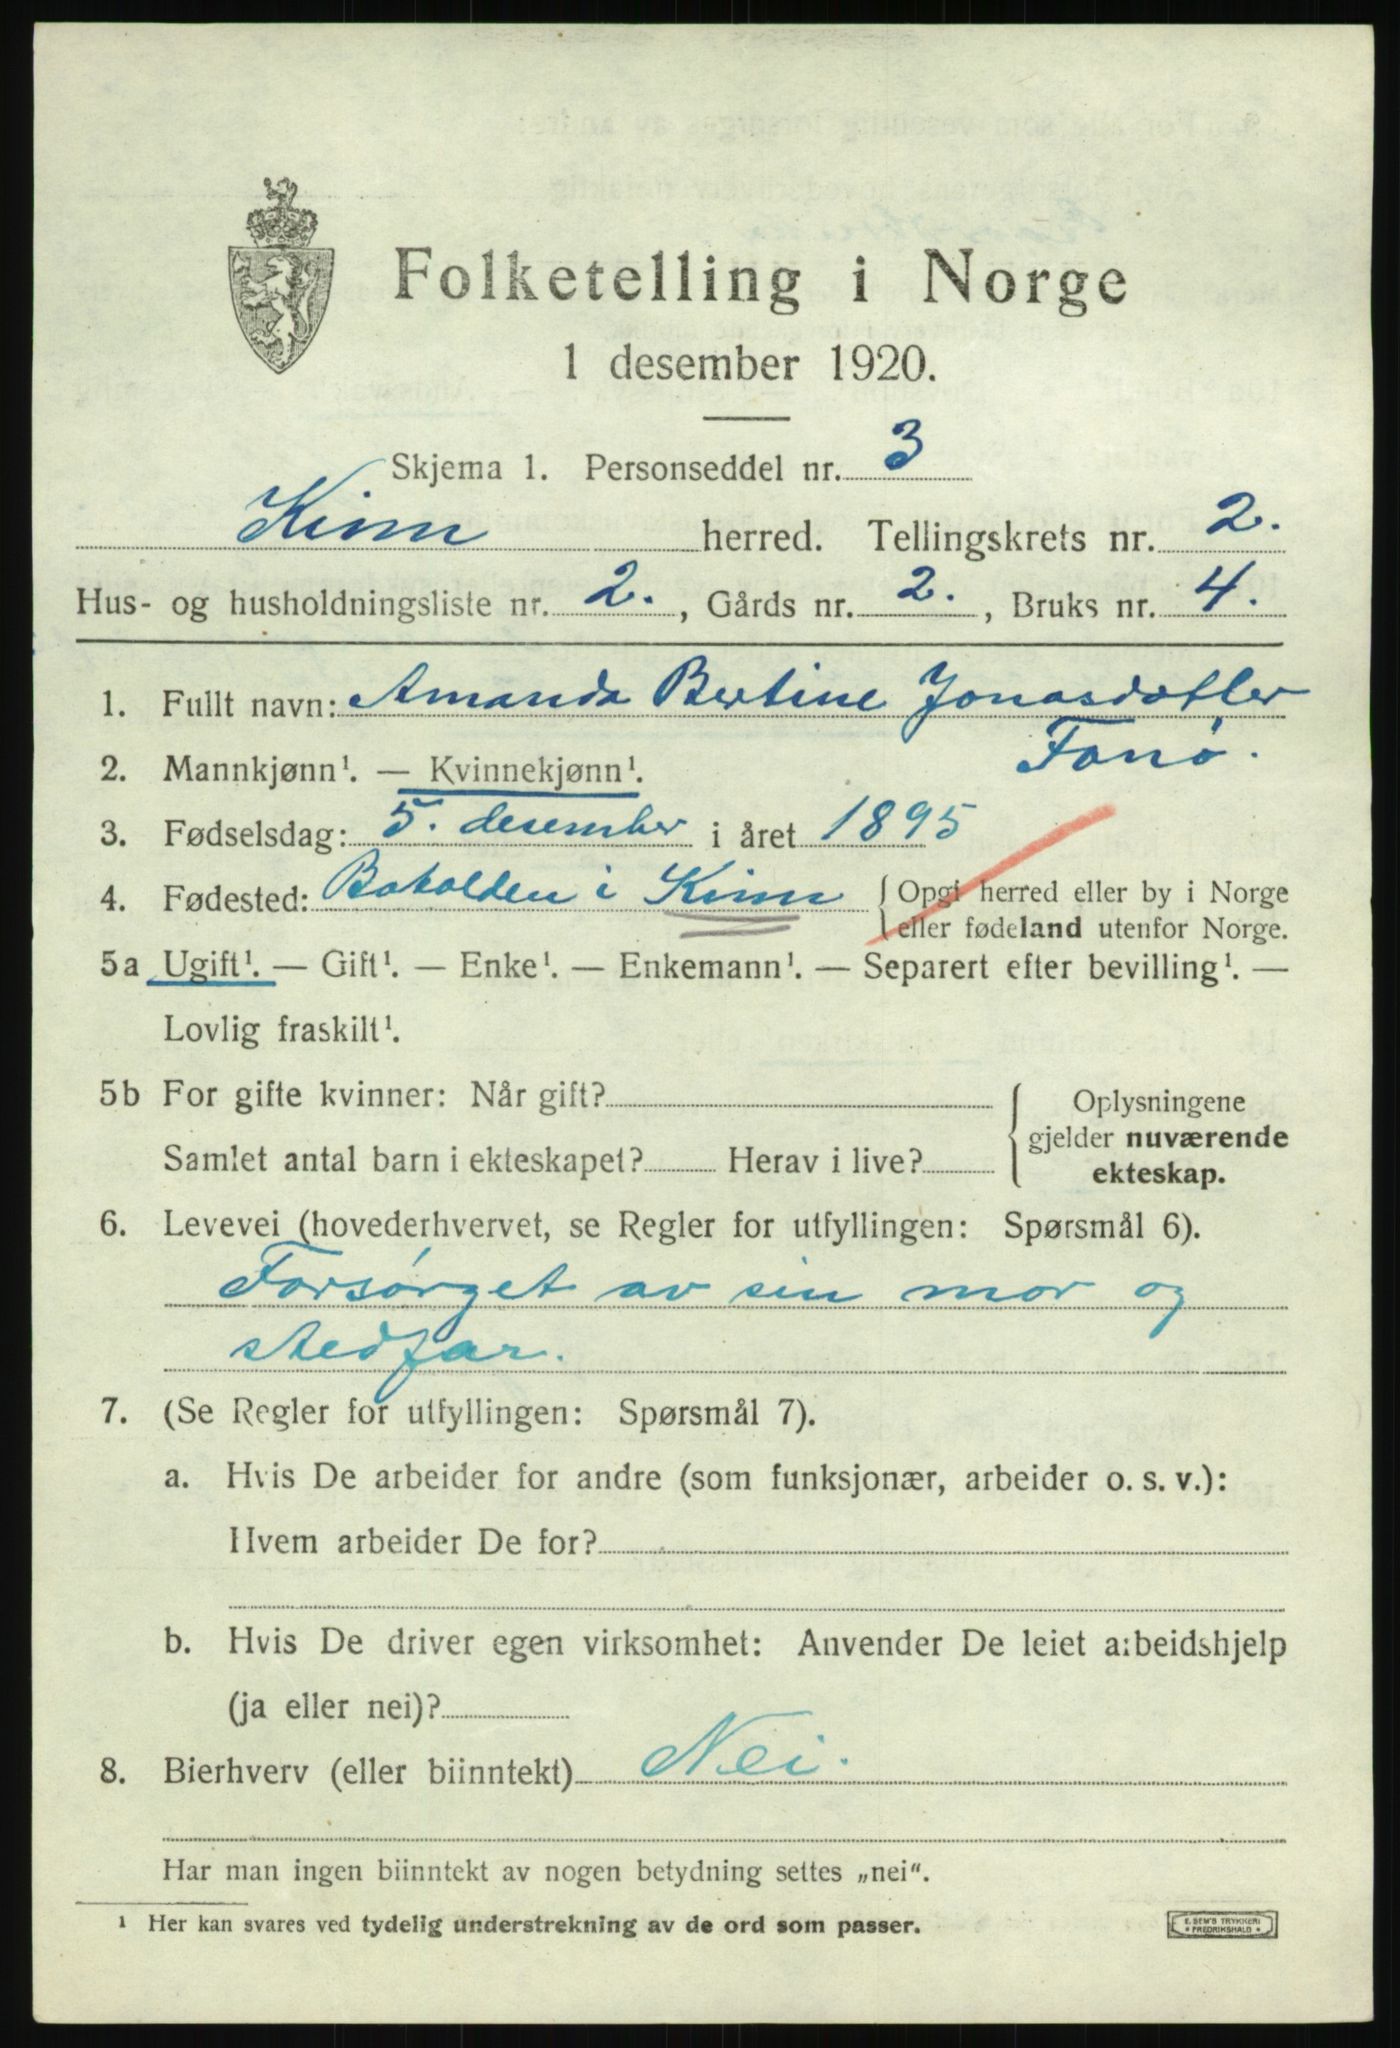 Folketelling i Norge
1 desember 1920.
Skjema 1. Personseddel nr. 3
Kinn herred. Tellingskrets nr. 2.
Hus- og husholdningsliste nr. 2., Gårds nr. 2., Bruks nr. 4.
1. Fullt navn: Amanda Bertine Jonasdatter
Fanø.
2. Mannkjønn¹. — Kvinnekjønn¹.
3. Fødselsdag: 5. desember i året 1895
4. Fødested: Batalden i Kinn { Opgi herred eller by i Norge
eller fødeland utenfor Norge.
5a Ugift¹. — Gift¹. — Enke¹. — Enkemann¹. — Separert efter bevilling¹. —
Lovlig fraskilt¹.
5b For gifte kvinner: Når gift? { Oplysningene
gjelder nuværende
Samlet antal barn i ekteskapet? Herav i live?
ekteskap.
6. Levevei (hovederhvervet, se Regler for utfyllingen: Spørsmål 6).
Forsørget av sin mor og
stedfar.
7. (Se Regler for utfyllingen: Spørsmål 7).
a. Hvis De arbeider for andre (som funksjonær, arbeider o. s. v.):
Hvem arbeider De for?
b. Hvis De driver egen virksomhet: Anvender De leiet arbeidshjelp
(ja eller nei)?
8. Bierhverv (eller biinntekt) Nei.
Har man ingen biinntekt av nogen betydning settes „nei“.
¹ Her kan svares ved tydelig understrekning av de ord som passer.
E. SEM'S TRYKKERI
FREDRIKSHALD